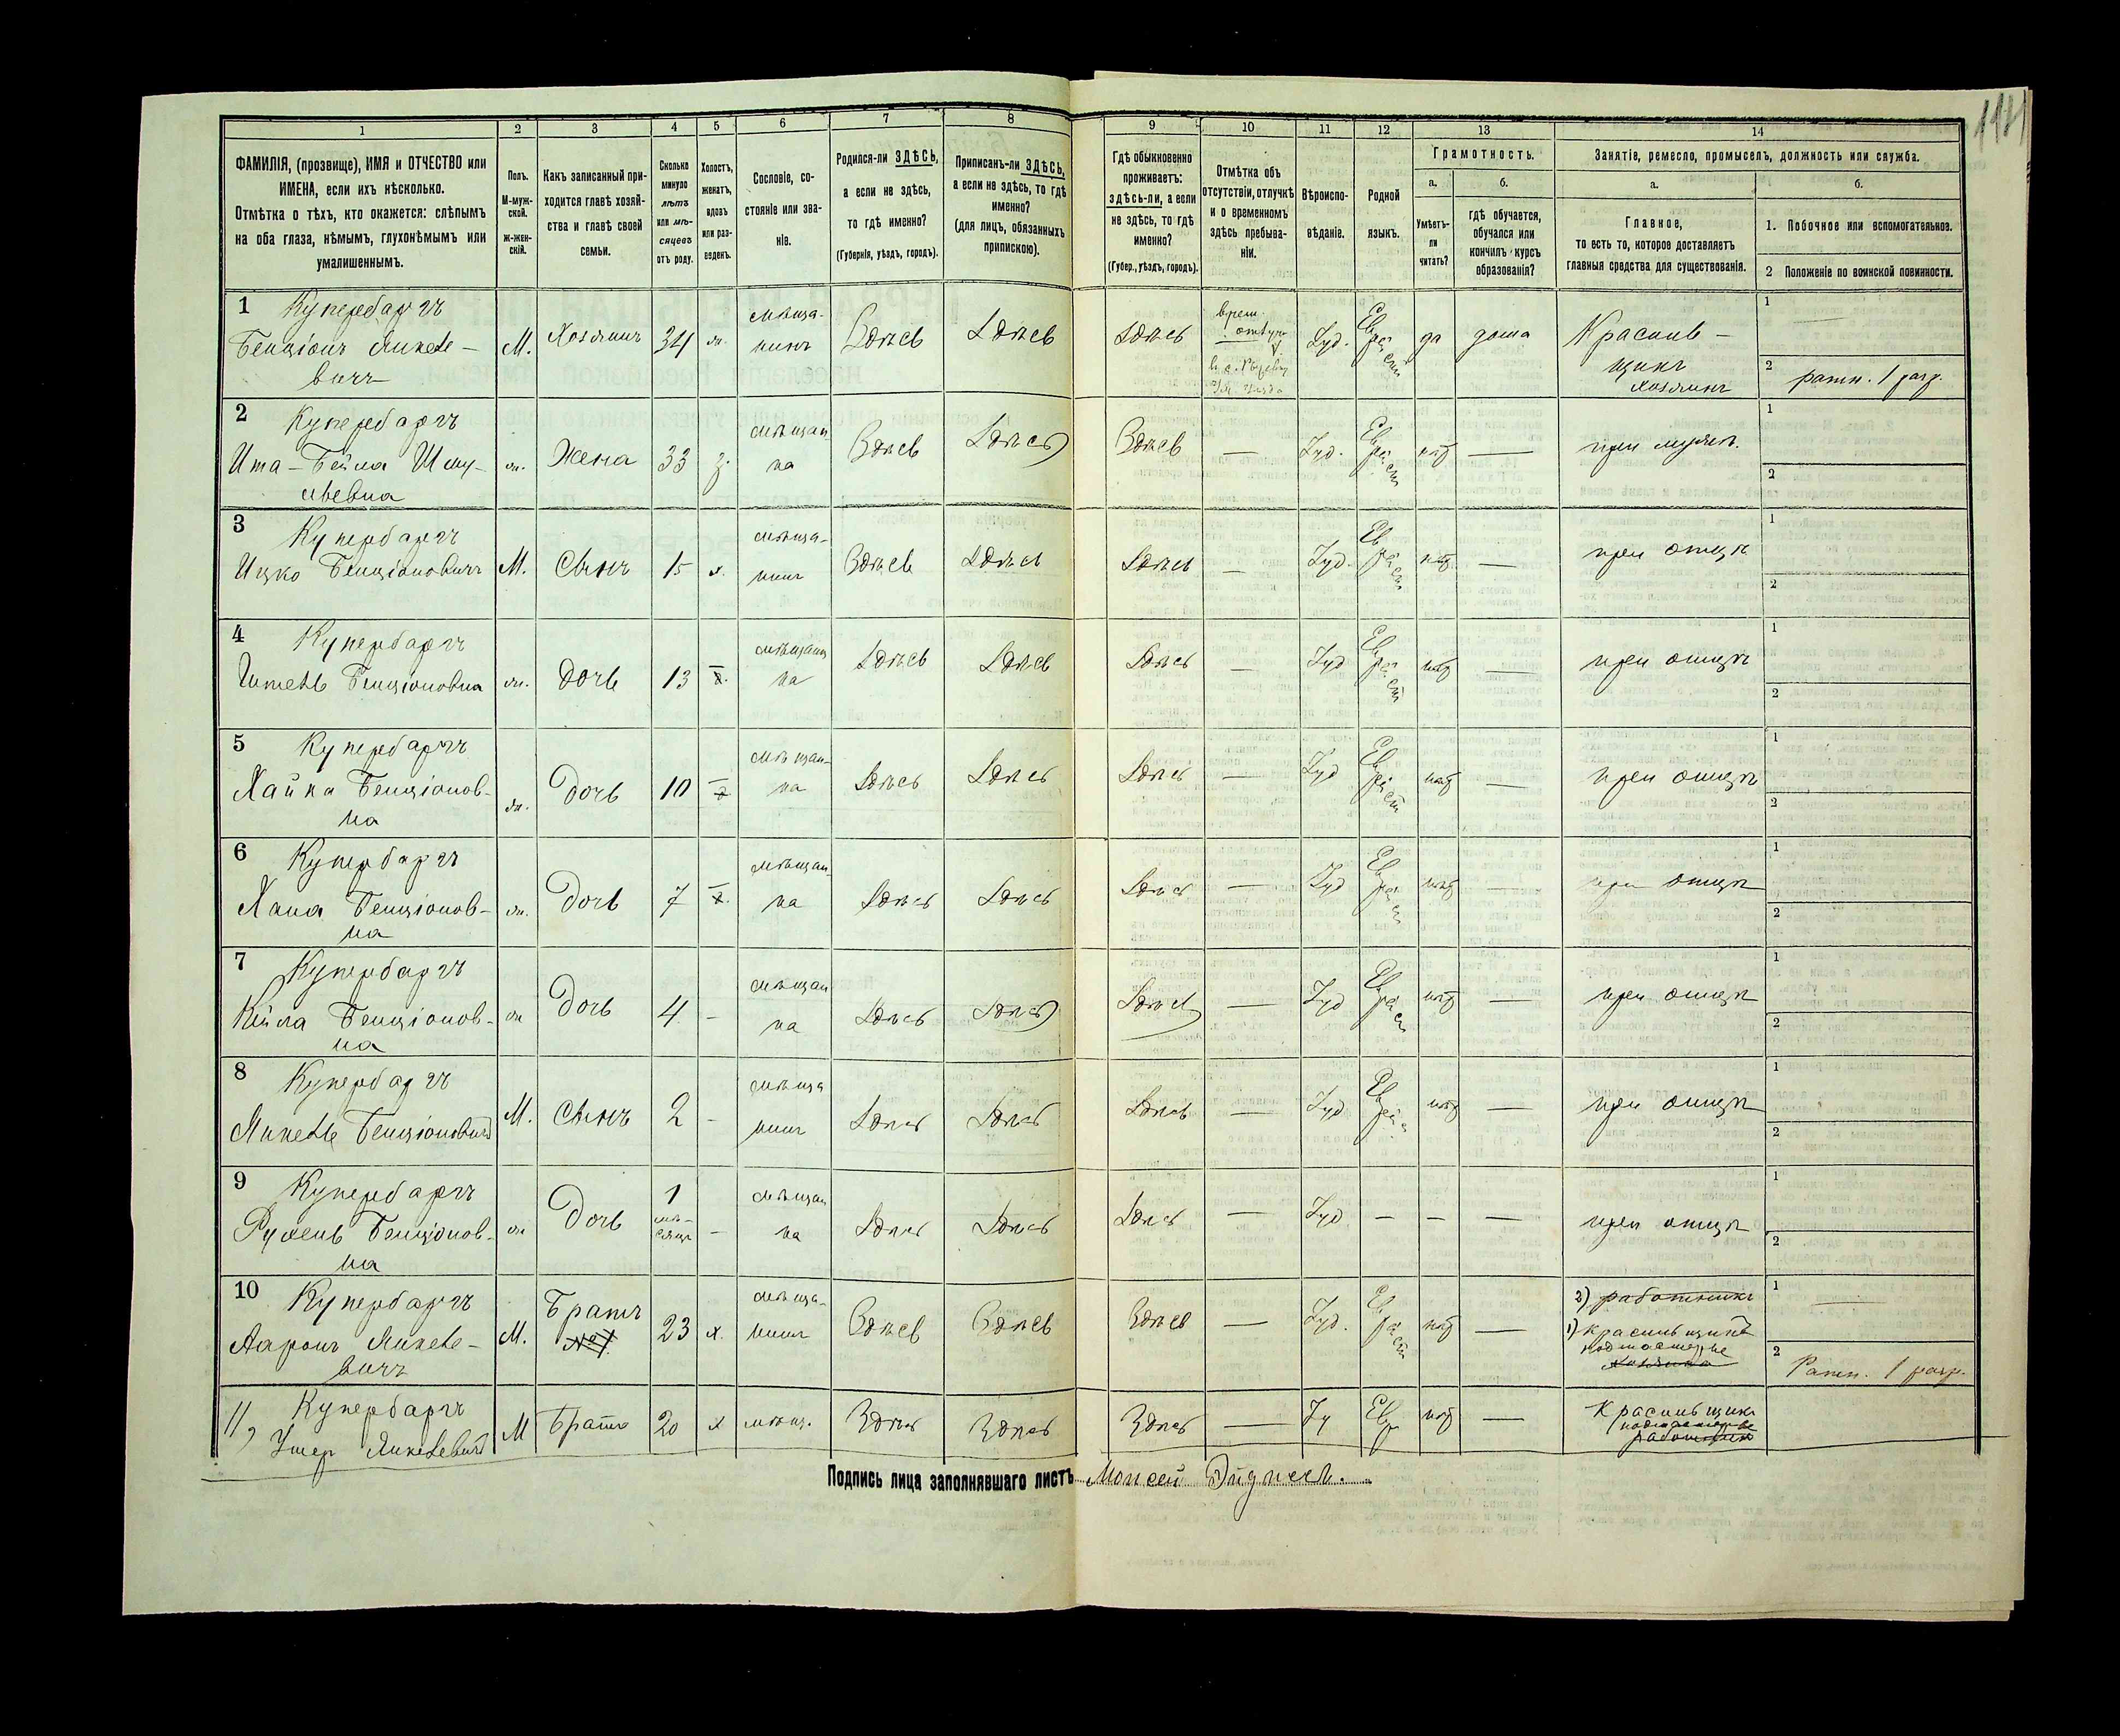 1 2 3 4 5 6 7 8 9 10 11 12 13 14
ФАМИЛІЯ, (прозвище), ИМЯ и ОТЧЕСТВО или
ИМЕНА, если ихъ нѣсколько.
Отмѣтка о тѣхъ, кто окажется: слѣпымъ
на оба глаза, нѣмымъ, глухонѣмымъ или
умалишеннымъ.
Полъ.
М-муж-
ской.
Ж-жен-
скій.
Какъ записанный при-
ходится главѣ хозяй-
ства и главѣ своей
семьи.
Сколько
минуло
лѣтъ
или мѣ-
сяцевъ
отъ роду.
Холостъ,
женатъ,
вдовъ
или раз-
веденъ.
Сословіе, со-
стояніе или зва-
ніе.
Родился-ли ЗДѢСЬ,
а если не здѣсь,
то гдѣ именно?
(Губернія, уѣздъ, городъ).
Приписанъ-ли ЗДѢСЬ,
а если не здѣсь, то гдѣ
именно?
(для лицъ, обязанныхъ
припискою).
Гдѣ обыкновенно
проживаетъ:
здѣсь-ли, а если
не здѣсь, то гдѣ
именно?
(Губер., уѣздъ, городъ).
Отмѣтка объ
отсутствіи, отлучкѣ
и о временномъ
здѣсь пребыва-
ніи.
Вѣроиспо-
вѣданіе.
Родной
языкъ.
Грамотность.
а.
Умѣетъ-
ли
читать?
б.
гдѣ обучается,
обучался или
кончилъ курсъ
образованія?
Занятіе, ремесло, промыселъ, должность или служба.
а.
Главное,
то есть то, которое доставляетъ
главныя средства для существованія.
б.
1. Побочное или вспомогательное.
2 Положеніе по воинской повинности.
1 Купербаргъ
Бенціонъ Янкеле-
вичъ
М. Хозяинъ 34 ж. мѣща-
нинъ Здѣсь Здѣсь Здѣсь врем. Іуд. Еврейск да дома Красиль-
щикъ
хозяинъ
1 —
2 ратн. 1 разр.
2 Купербаргъ
Ита-Бейла Шму-
левна
ж. Жена 33 з. мѣщан
ка Здѣсь Здѣсь Здѣсь — Іуд. Еврейск нѣт — при мужѣ.
1
2
3 Купербаргъ
Ицко Бенціоновичъ М. Сынъ 15 х. мѣща-
нинъ Здѣсь Здѣсь Здѣсь — Іуд. Еврейск нѣт — при отцѣ
1
2
4 Купербаргъ
Бенціоновна ж. дочь 13 х. мѣщан
ка Здѣсь Здѣсь Здѣсь — Іуд Еврейск нѣт — при отцѣ
1
2
5 Купербаргъ
Хайка Бенціонов-
на
ж. Дочь 10 мѣщан-
ка Здѣсь Здѣсь Здѣсь — Іуд Еврейск нѣт — при отцѣ
1
2
6 Купербаргъ
Хана Бенціонов-
на
ж. Дочь 7 х. мѣщан-
ка Здѣсь Здѣсь Здѣсь — Іуд Еврейск нѣт — при отцѣ
1
2
7 Купербаргъ
Кейла Бенціонов-
на
ж Дочь 4 - мѣщан
ка Здѣсь Здѣсь Здѣсь — Іуд Еврейск нѣт — при отцѣ
1
2
8 Купербаргъ
Янкель Бенціоновичъ М. Сынъ 2 - мѣща
нинъ Здѣсь Здѣсь Здѣсь — Іуд Еврейс нѣт — при отцѣ
1
2
9 Купербаргъ
Бенціонов-
на
ж Дочь 1
мѣ-
сяцъ - мѣщан
ка Здѣсь Здѣсь Здѣсь — Іуд - - — при отцѣ
1
2
10 Купербаргъ
Ааронъ Янкеле-
вичъ
М. Братъ
№1 23 х. мѣща-
нинъ Здѣсь Здѣсь Здѣсь — Іуд. Еврейск нѣт —
2) работникъ
1) красильщикъ
подмастерье
хозяина
1 —
2 Ратн. 1 разр.
11, Купербаргъ
Ушер Янкелевичъ М Братъ 20 х мѣщ. Здѣсь Здѣсь Здѣсь — Іу Евр нѣт — Красильщикъ
подмастерье
работникъ
Подпись лица заполнявшаго листъ Моисей